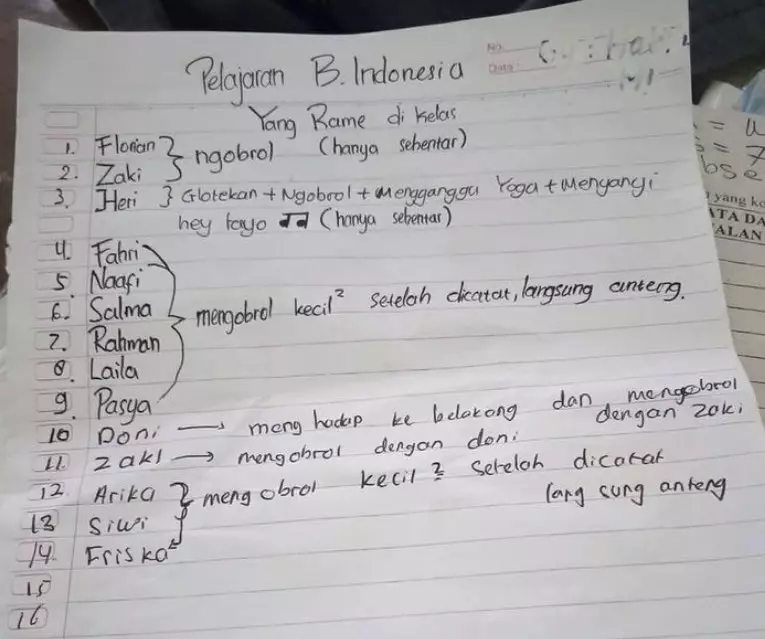 Pelajaran B. Indonesia
No.
Date:
Yang Rame di kelas
1. Florian
2. Zaki
ngobrol (hanya sebentar)
3. Heri } Glotekan + Ngobrol + Mengganggu Yoga + Menyanyi
hey tayo (hanya sebentar)
4. Fahri
5. Naafi
6. Salma
7. Rahman
8. Laila
9. Pasya
mengobrol kecil² setelah dicatat, langsung anteng.
10 Doni → meng hadap ke belakang dan mengobrol
dengan zaki
11. zaki → mengobrol dengan doni
12. Arika
13 Siwi
14. Friska
meng obrol kecil 2 setelah dicatat
lang sung anteng
15
16
yang
ATA DA
ALAN